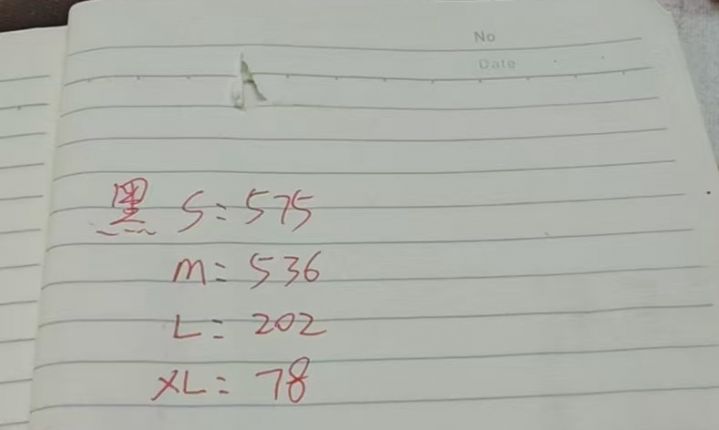 No
Date
黑 S = 575
M = 536
L = 202
XL = 78